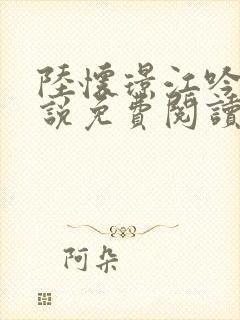 陸懷璟江吟
說免費閱讀
阿朵